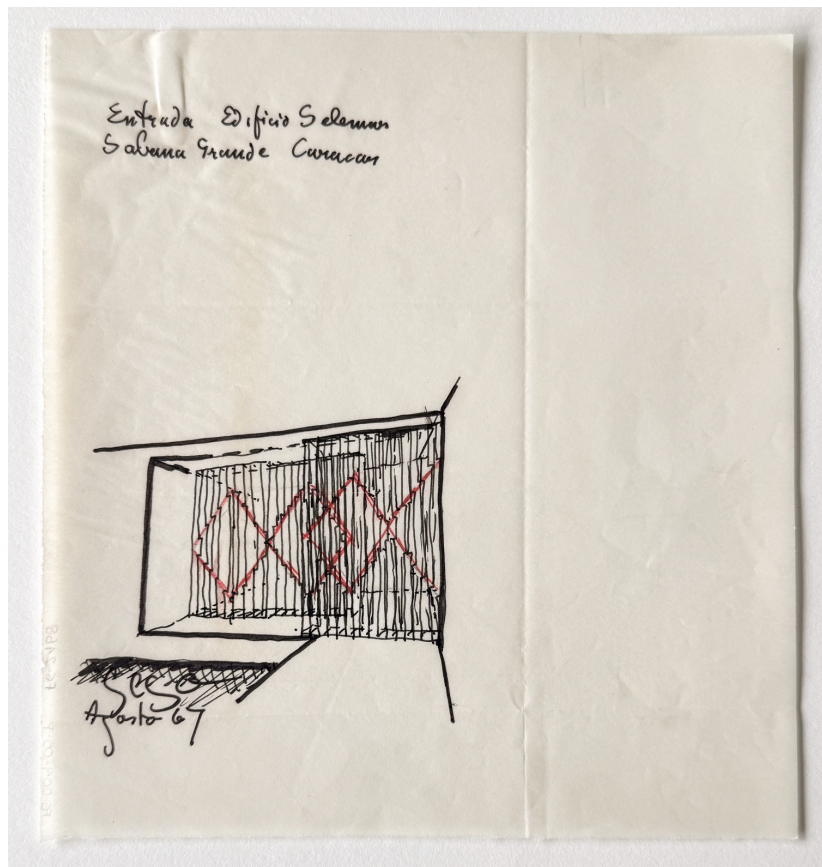 Entrada Edificio Selemar
Sabana Grande Caracas
Gego
Agosto 67